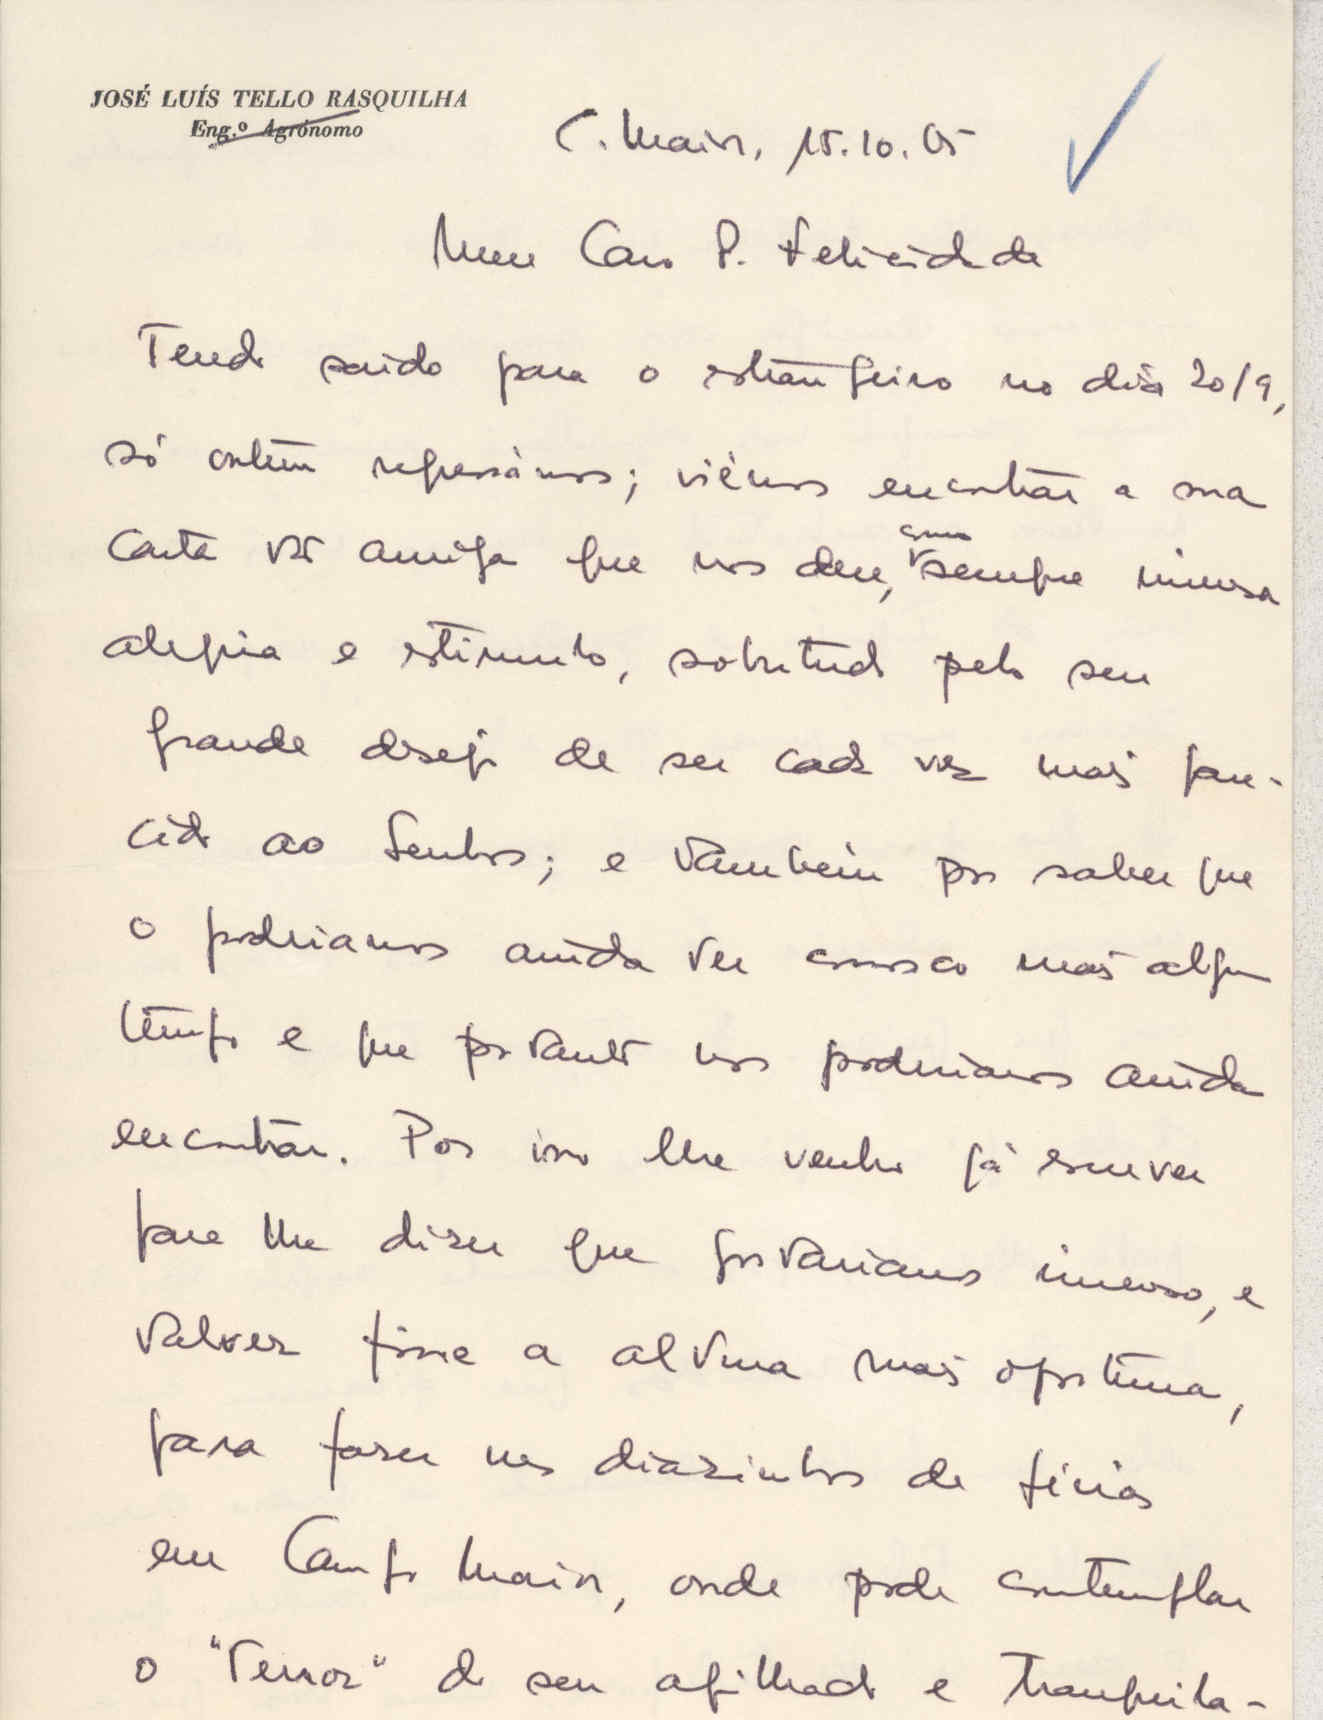 JOSÉ LUÍS TELLO RASQUILHA
Eng.º Agrónomo
C. Maior, 15.10.65
Meu Caro P. Felicidade
Tendo saído para o estrangeiro no dia 20/9,
só ontem regressámos; viémos encontrar a sua
carta tão amiga que nos deu, como sempre imensa
alegria e estímulo, sobretudo pelo seu
grande desejo de ser cada vez mais pare-
cido ao Senhor; e também por saber que
o poderíamos ainda ver connosco mais algum
tempo e que portanto nos poderíamos ainda
encontrar. Por isso lhe venho já escrever
para lhe dizer que gostaríamos imenso, e
talvez fosse a altura mais oportuna,
para fazer uns diazinhos de férias
em Campo Maior, onde pode contemplar
o "terror" do seu afilhado e tranquila-